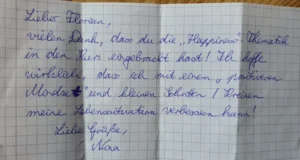 Lieber Florian,
vielen Dank, dass du die „Happiness" Thematik
in den Kurs eingebracht hast! Ich hoffe
wirklich, dass ich mit einem „positiveren
Mindset" und kleinen Schritten / Kreisen
meine Lebenssituation verbessern kann!
Liebe Grüße,
Nina